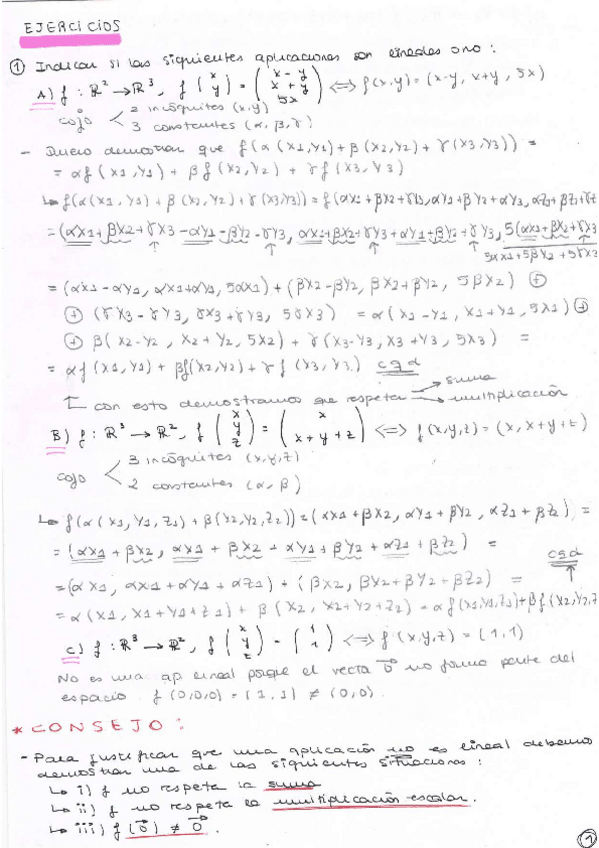 EJERCICIOS
① Indicar si las siguientes aplicaciones son lineales o no:
A) f: ℝ² → ℝ³, f (x y) = (x-y x+y 5x) ⟺ f(x,y) = (x-y, x+y, 5x)
cojo < 2 incógnitas (x,y)
3 constantes (α, β, γ)
- Quiero demostrar que f(α(x1,y1)+β(x2,y2)+γ(x3,y3)) =
= αf(x1,y1) + βf(x2,y2) + γf(x3,y3)
↳ f(α(x1,y1)+β(x2,y2)+γ(x3,y3)) = f(αx1+βx2+γx3, αy1+βy2+γy3,
= (αx1+βx2+γx3-αy1-βy2-γy3, αx1+βx2+γx3+αy1+βy2+γy3, 5(αx1+βx2+γx3
5αx1+5βx2+5γx3
= (αx1-αy1, αx1+αy1, 5αx1) + (βx2-βy2, βx2+βy2, 5βx2) ⊕
⊕ (γx3-γy3, γx3+γy3, 5γx3) = α(x1-y1, x1+y1, 5x1) ⊕
⊕ β(x2-y2, x2+y2, 5x2) + γ(x3-y3, x3+y3, 5x3) =
= αf(x1,y1) + βf(x2,y2) + γf(x3,y3) cqd
↑ con esto demostramos que respeta → suma
→ multiplicación
B) f: ℝ³ → ℝ², f (x y z) = (x x+y+z) ⟺ f(x,y,z) = (x, x+y+z)
cojo < 3 incógnitas (x,y,z)
2 constantes (α, β)
↳ f(α(x1,y1,z1)+β(x2,y2,z2)) = (αx1+βx2, αy1+βy2, αz1+βz2) =
= (αx1+βx2, αx1+βx2+αy1+βy2+αz1+βz2) =
cqd
= (αx1, αx1+αy1+αz1) + (βx2, βx2+βy2+βz2) =
= α(x1, x1+y1+z1) + β(x2, x2+y2+z2) = αf(x1,y1,z1)+βf(x2,y2,z
c) f: ℝ³ → ℝ², f (x y z) = (1 1) ⟺ f(x,y,z) = (1,1)
No es una ap. lineal porque el vector 0⃗ no forma parte del
espacio. f(0,0,0) = (1,1) ≠ (0,0).
* CONSEJO:
- Para justificar que una aplicación no es lineal debemos
demostrar una de las siguientes situaciones:
↳ i) f no respeta la suma
↳ ii) f no respeta la multiplicación escalar.
↳ iii) f(0⃗) ≠ 0⃗.
①